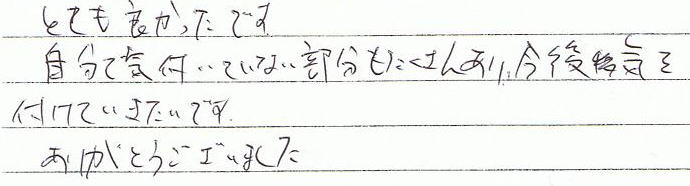 とても良かったです
自分で気付いていない部分もたくさんあり、今後気を
付けていきたいです。
ありがとうございました